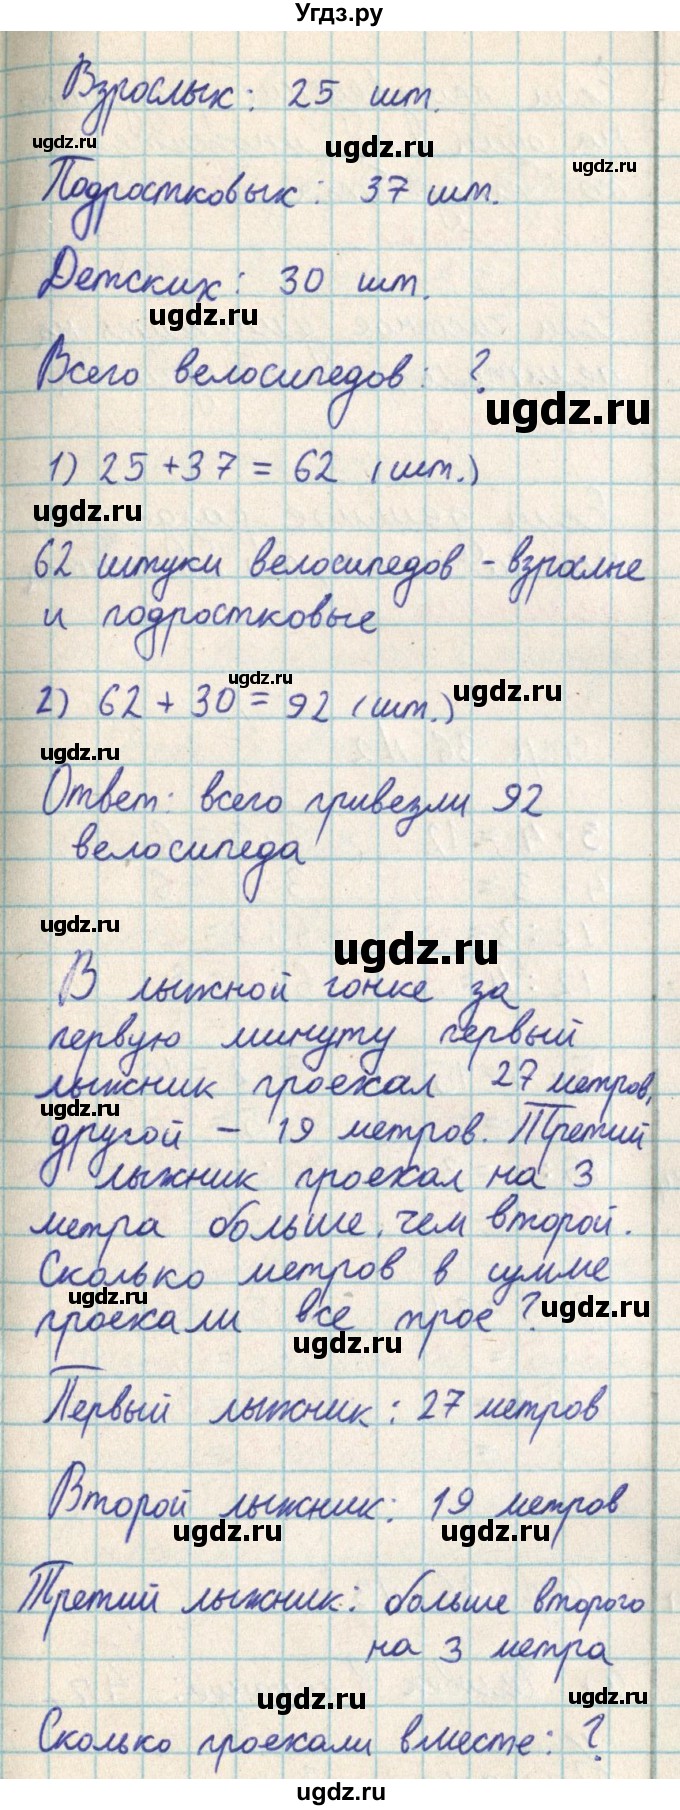 Угдз.ру
Взрослых: 25 шт.
ugdz.ru ugdz.ru ugdz.ru
Подростковых: 37 шт.
Детских: 30 шт.
ugdz.ru
Всего велосипедов: ?
ugdz.ru
1) 25 + 37 = 62 (шт.)
ugdz.ru
62 штуки велосипедов - взрослые
и подростковые
ugdz.ru ugdz.ru
2) 62 + 30 = 92 (шт.)
ugdz.ru
Ответ: всего привезли 92
велосипеда
ugdz.ru ugdz.ru
В лыжной гонке за
первую минуту первый
лыжник проехал 27 метров,
ugdz.ru
другой - 19 метров. Третий
лыжник проехал на 3
метра больше, чем второй.
Сколько метров в сумме
ugdz.ru ugdz.ru
проехали все трое?
ugdz.ru
Первый лыжник: 27 метров
Второй лыжник: 19 метров
ugdz.ru ugdz.ru
Третий лыжник: больше второго
на 3 метра
ugdz.ru ugdz.ru
Сколько проехали вместе: ?
ugdz.ru